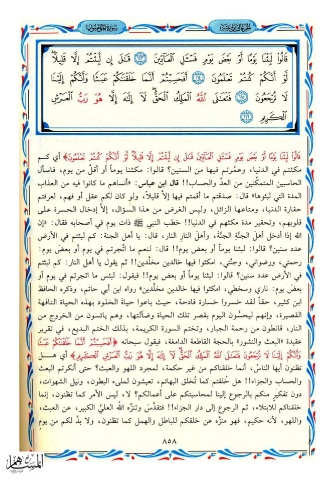 قَالُوا لَبِثْنَا يَوْمًا أَوْ بَعْضَ يَوْمٍ فَسْـَٔلِ الْعَآدِّينَ ۝ قَٰلَ إِن لَّبِثْتُمْ إِلَّا قَلِيلًا ۖ
لَّوْ أَنَّكُمْ كُنتُمْ تَعْلَمُونَ ۝ أَفَحَسِبْتُمْ أَنَّمَا خَلَقْنَٰكُمْ عَبَثًا وَأَنَّكُمْ إِلَيْنَا
لَا تُرْجَعُونَ ۝ فَتَعَٰلَى اللَّهُ الْمَلِكُ الْحَقُّ ۖ لَآ إِلَٰهَ إِلَّا هُوَ رَبُّ الْعَرْشِ
الْكَرِيمِ ۝
﴿قَالُوا لَبِثْنَا يَوْمًا أَوْ بَعْضَ يَوْمٍ فَسْـَٔلِ الْعَآدِّينَ قَٰلَ إِن لَّبِثْتُمْ إِلَّا قَلِيلًا لَّوْ أَنَّكُمْ كُنتُمْ تَعْلَمُونَ﴾ أي كم
مكثتم في الدنيا، وعمَّرتم فيها من السنين؟ قالوا: مكثنا يوماً أو أقلَّ من يوم، فاسأل
الحاسبين المتمكّنين من العدِّ والحساب!! قال ابن عباس: «أنساهم ما كانوا فيه من العذاب
المدة التي لبثوها» قال: صدقتم ما أقمتم فيها إلَّا قليلاً، ولو كان لكم عقل أو فهم، لعرفتم
حقارة الدنيا، ومتاعها الزائل، وليس الغرض من هذا السؤال، إلَّا إدخال الحسرة على
قلوبهم، وتحقير مدة مكثهم في الدنيا!! خطب النبي ﷺ ذات يوم في أصحابه فقال: «إن
الله إذا أدخل أهل الجنَّة الجنَّة، وأهل النار النار، قال: يا أهل الجنة: كم لبثتم في الأرض
عدد سنين؟ قالوا: لبثنا يوماً أو بعض يوم!! قال: لنعم ما اتَّجرتم في يوم أو بعض يوم:
رحمتي، ورضواني، وجنَّتي، امكثوا فيها خالدين مخلَّدين!! ثم يقول يا أهل النار: كم لبثتم
في الأرض عدد سنين؟ قالوا: لبثنا يوماً أو بعض يوم!! فيقول: لبئس ما اتجرتم في يوم أو
بعض يوم: ناري وسخطي، امكثوا فيها خالدين مخلَّدين» رواه ابن أبي حاتم، وذكره الحافظ
ابن كثير، حقاً لقد خسروا خسارة فادحة، حيث باعوا حياة الخلود بهذه الحياة التافهة
القصيرة، وإنهم ليحسُّون اليوم بقصر تلك الحياة وضآلتها، وهم يائسون من الخروج من
النار، قانطون من رحمة الجبار، وتختم السورة الكريمة، بذلك الختم البديع، في تقرير
عقيدة «البعث والنشور» بالحجة القاطعة الدامغة، فيقول سبحانه ﴿أَفَحَسِبْتُمْ أَنَّمَا خَلَقْنَٰكُمْ عَبَثًا
وَأَنَّكُمْ إِلَيْنَا لَا تُرْجَعُونَ فَتَعَٰلَى اللَّهُ الْمَلِكُ الْحَقُّ لَآ إِلَٰهَ إِلَّا هُوَ رَبُّ الْعَرْشِ الْكَرِيمِ﴾ أي هل
تظنون أيها الناسُ، أنما خلقناكم من غير حكمة، لمجرد اللهو والعبث؟ حتى أنكرتم البعث
والحساب والجزاء!! هل خُلقتم كما تُخلق البهائم، تعيشون لملء البطون، ونيل الشهوات،
دون تفكير منكم بالرجوع إلينا لمحاسبتكم على أعمالكم؟ لا، ليس الأمر كما تظنون، إنما
خلقناكم للابتلاء، ثم الرجوع إلى دار الجزاء!! فتقدَّس وتنزَّه الله العليُّ الكبير، عن العبث،
واللهو، لأنه حكيم، فهو منزَّه عن خلقكم بالباطل والهمل كما تظنون، ولا بدَّ لكم من يوم
٨٥٨